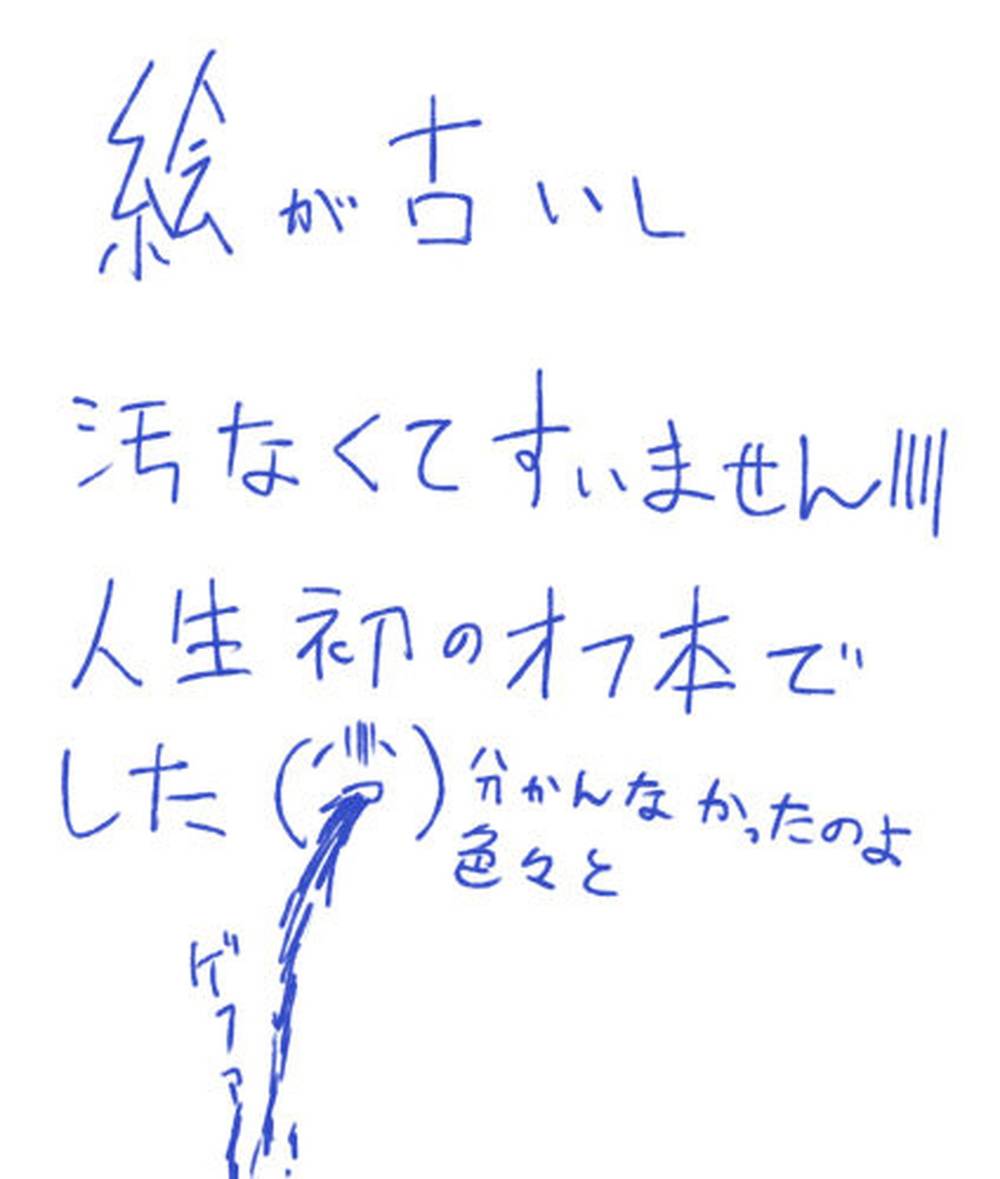 絵が古いし
汚なくてすいません
人生初のオフ本で
した
分かんなかったのよ
色々と
ゲファー!